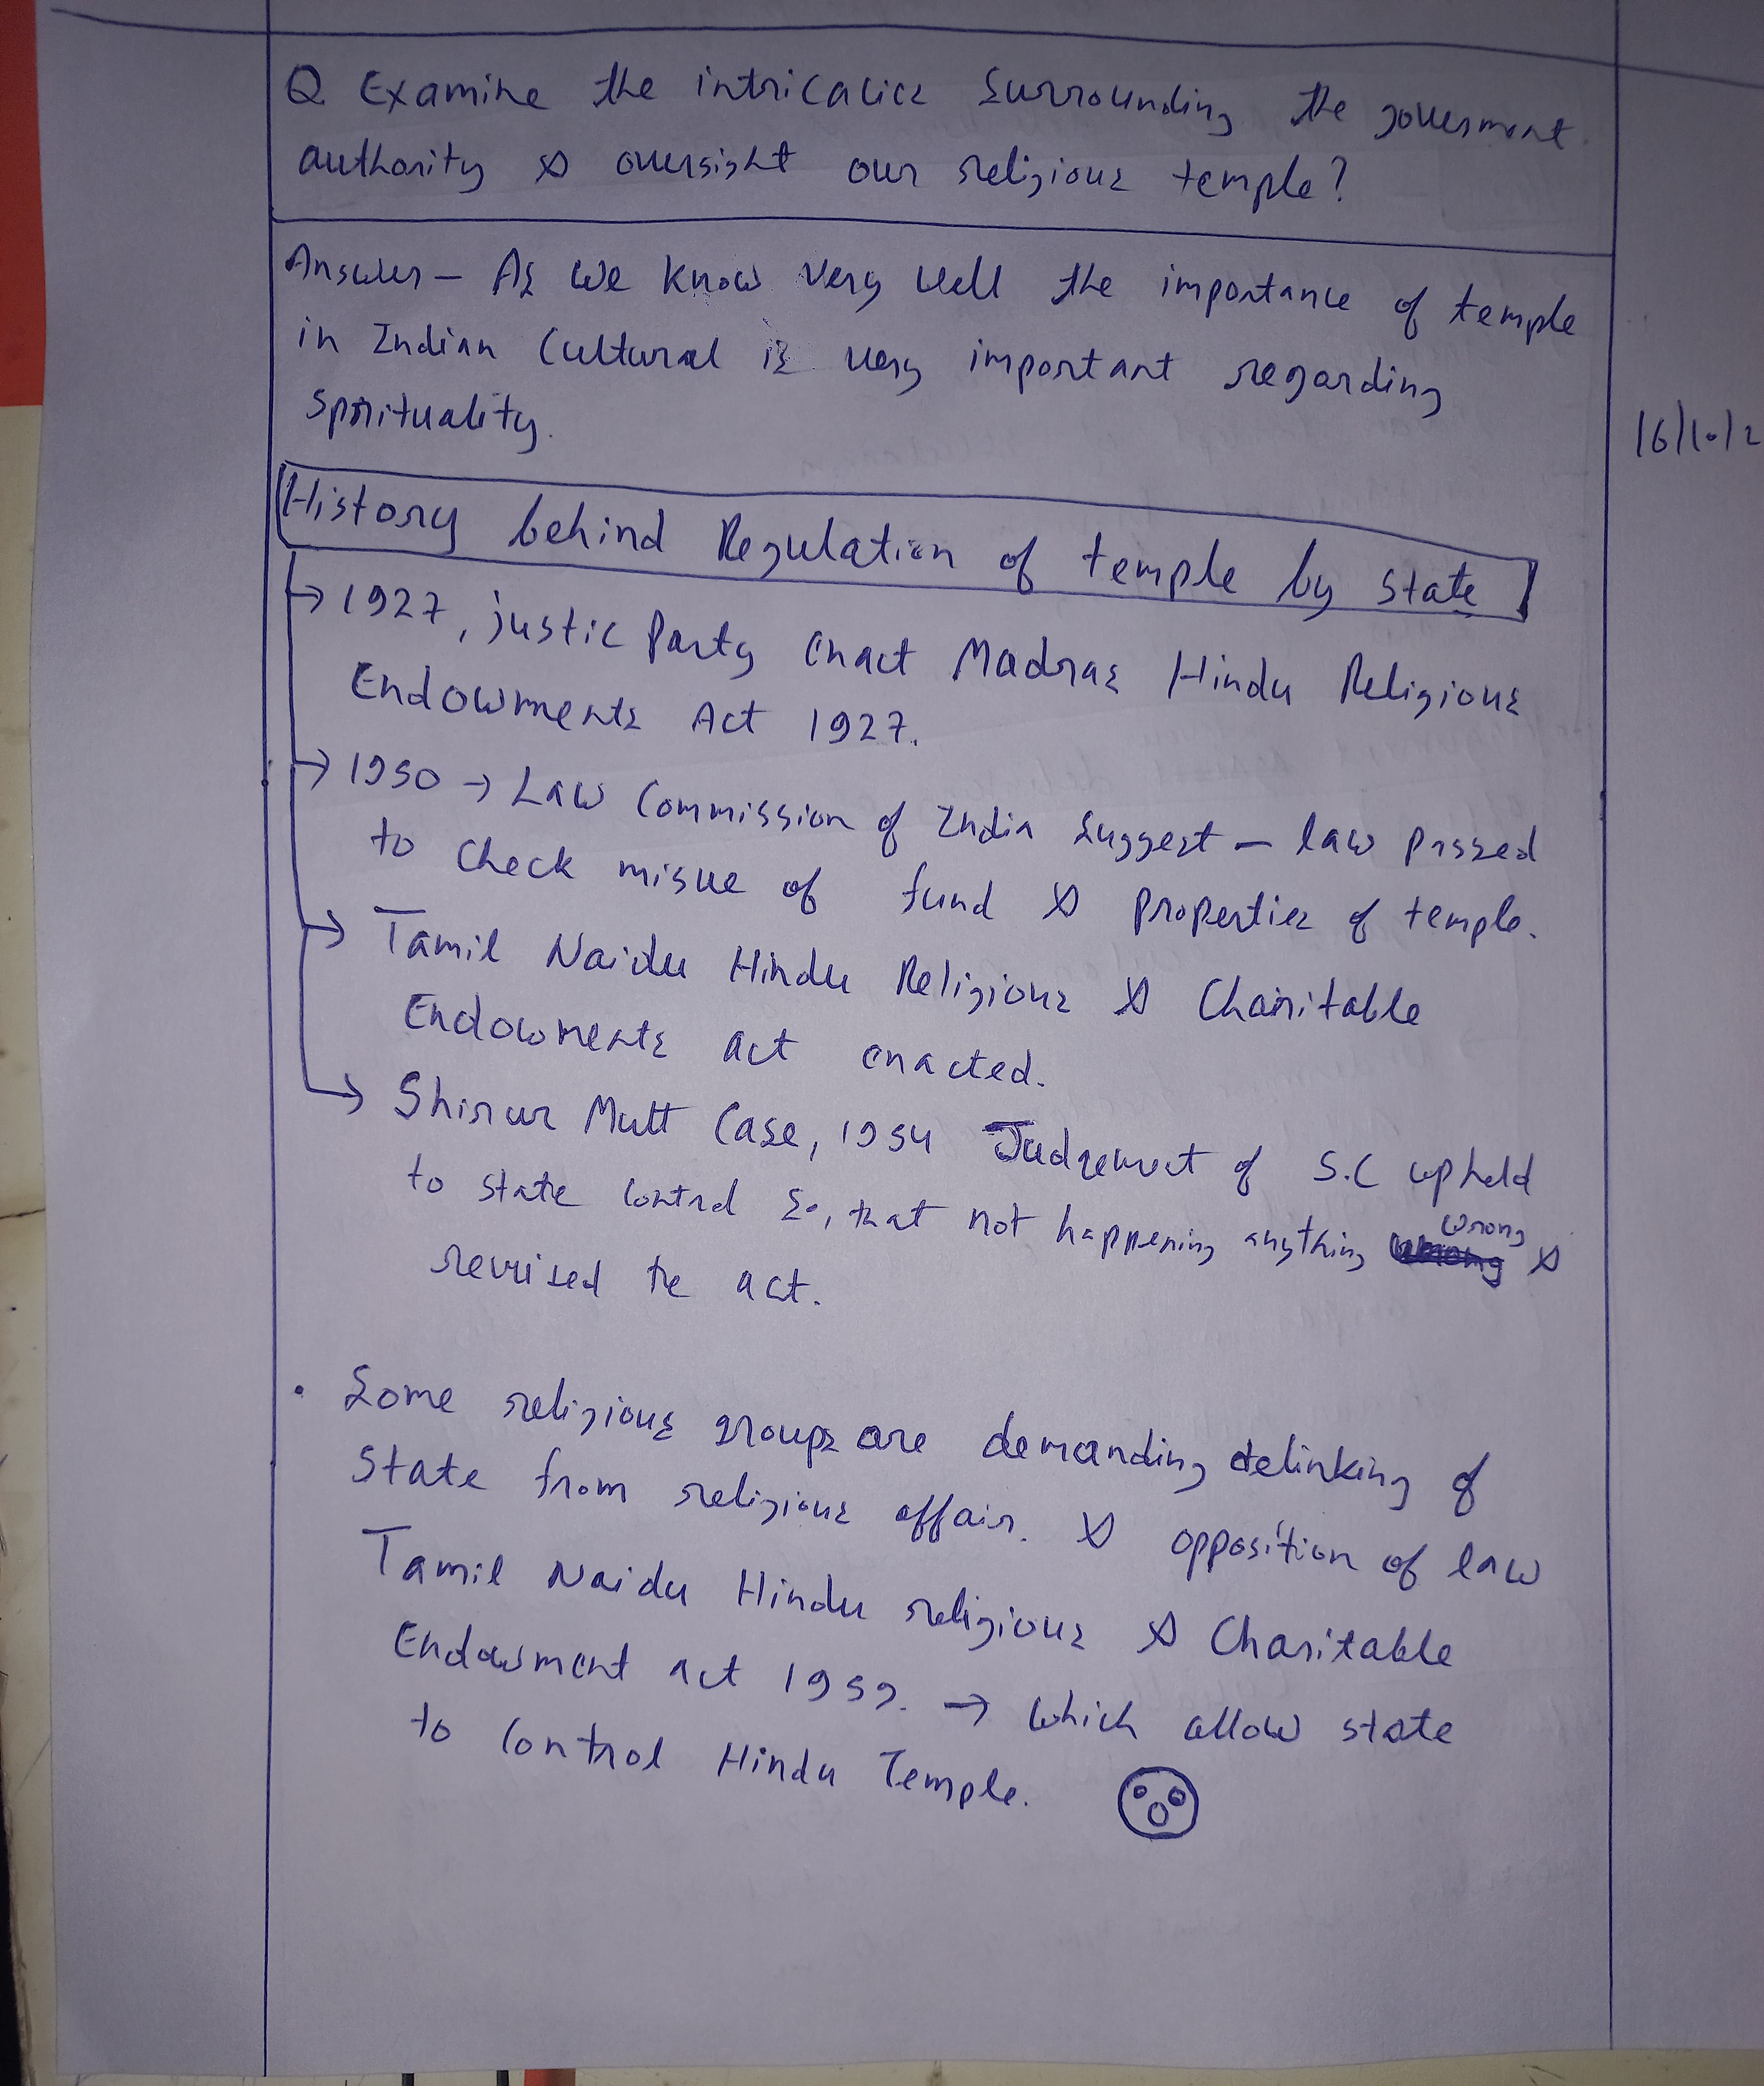 Q Examine the intricacies surrounding the goverment
authority & oversight our religious temple?
Answer – As we know very well the importance of temple
in Indian Cultural is very important regarding
spirituality.
History behind Regulation of temple by state
→ 1927, justic Party enact Madras Hindu Religious
Endowments Act 1927.
→ 1950 → Law Commission of India suggest – law passed
to check misue of fund & properties of temple.
→ Tamil Naidu Hindu Religious & Charitable
Endowments act enacted.
→ Shirur Mutt Case, 1954 Judgement of S.C upheld
to state control so, that not happening anything wrong &
revised the act.
• Some religious groups are demanding delinking of
State from religious affair. & opposition of law
Tamil Naidu Hindu religious & Charitable
Endowment act 1959. → which allow state
to control Hindu Temple.
16/10/2